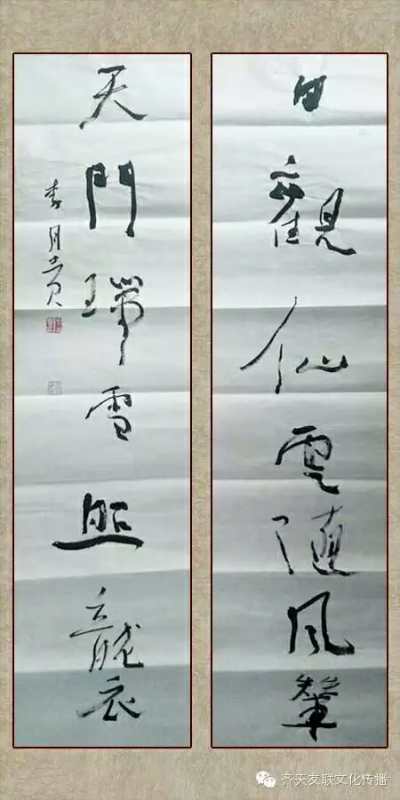 日觀仙雲隨凤輦
天門瑞雪照龍衣
李月貴
齐天友联文化传播